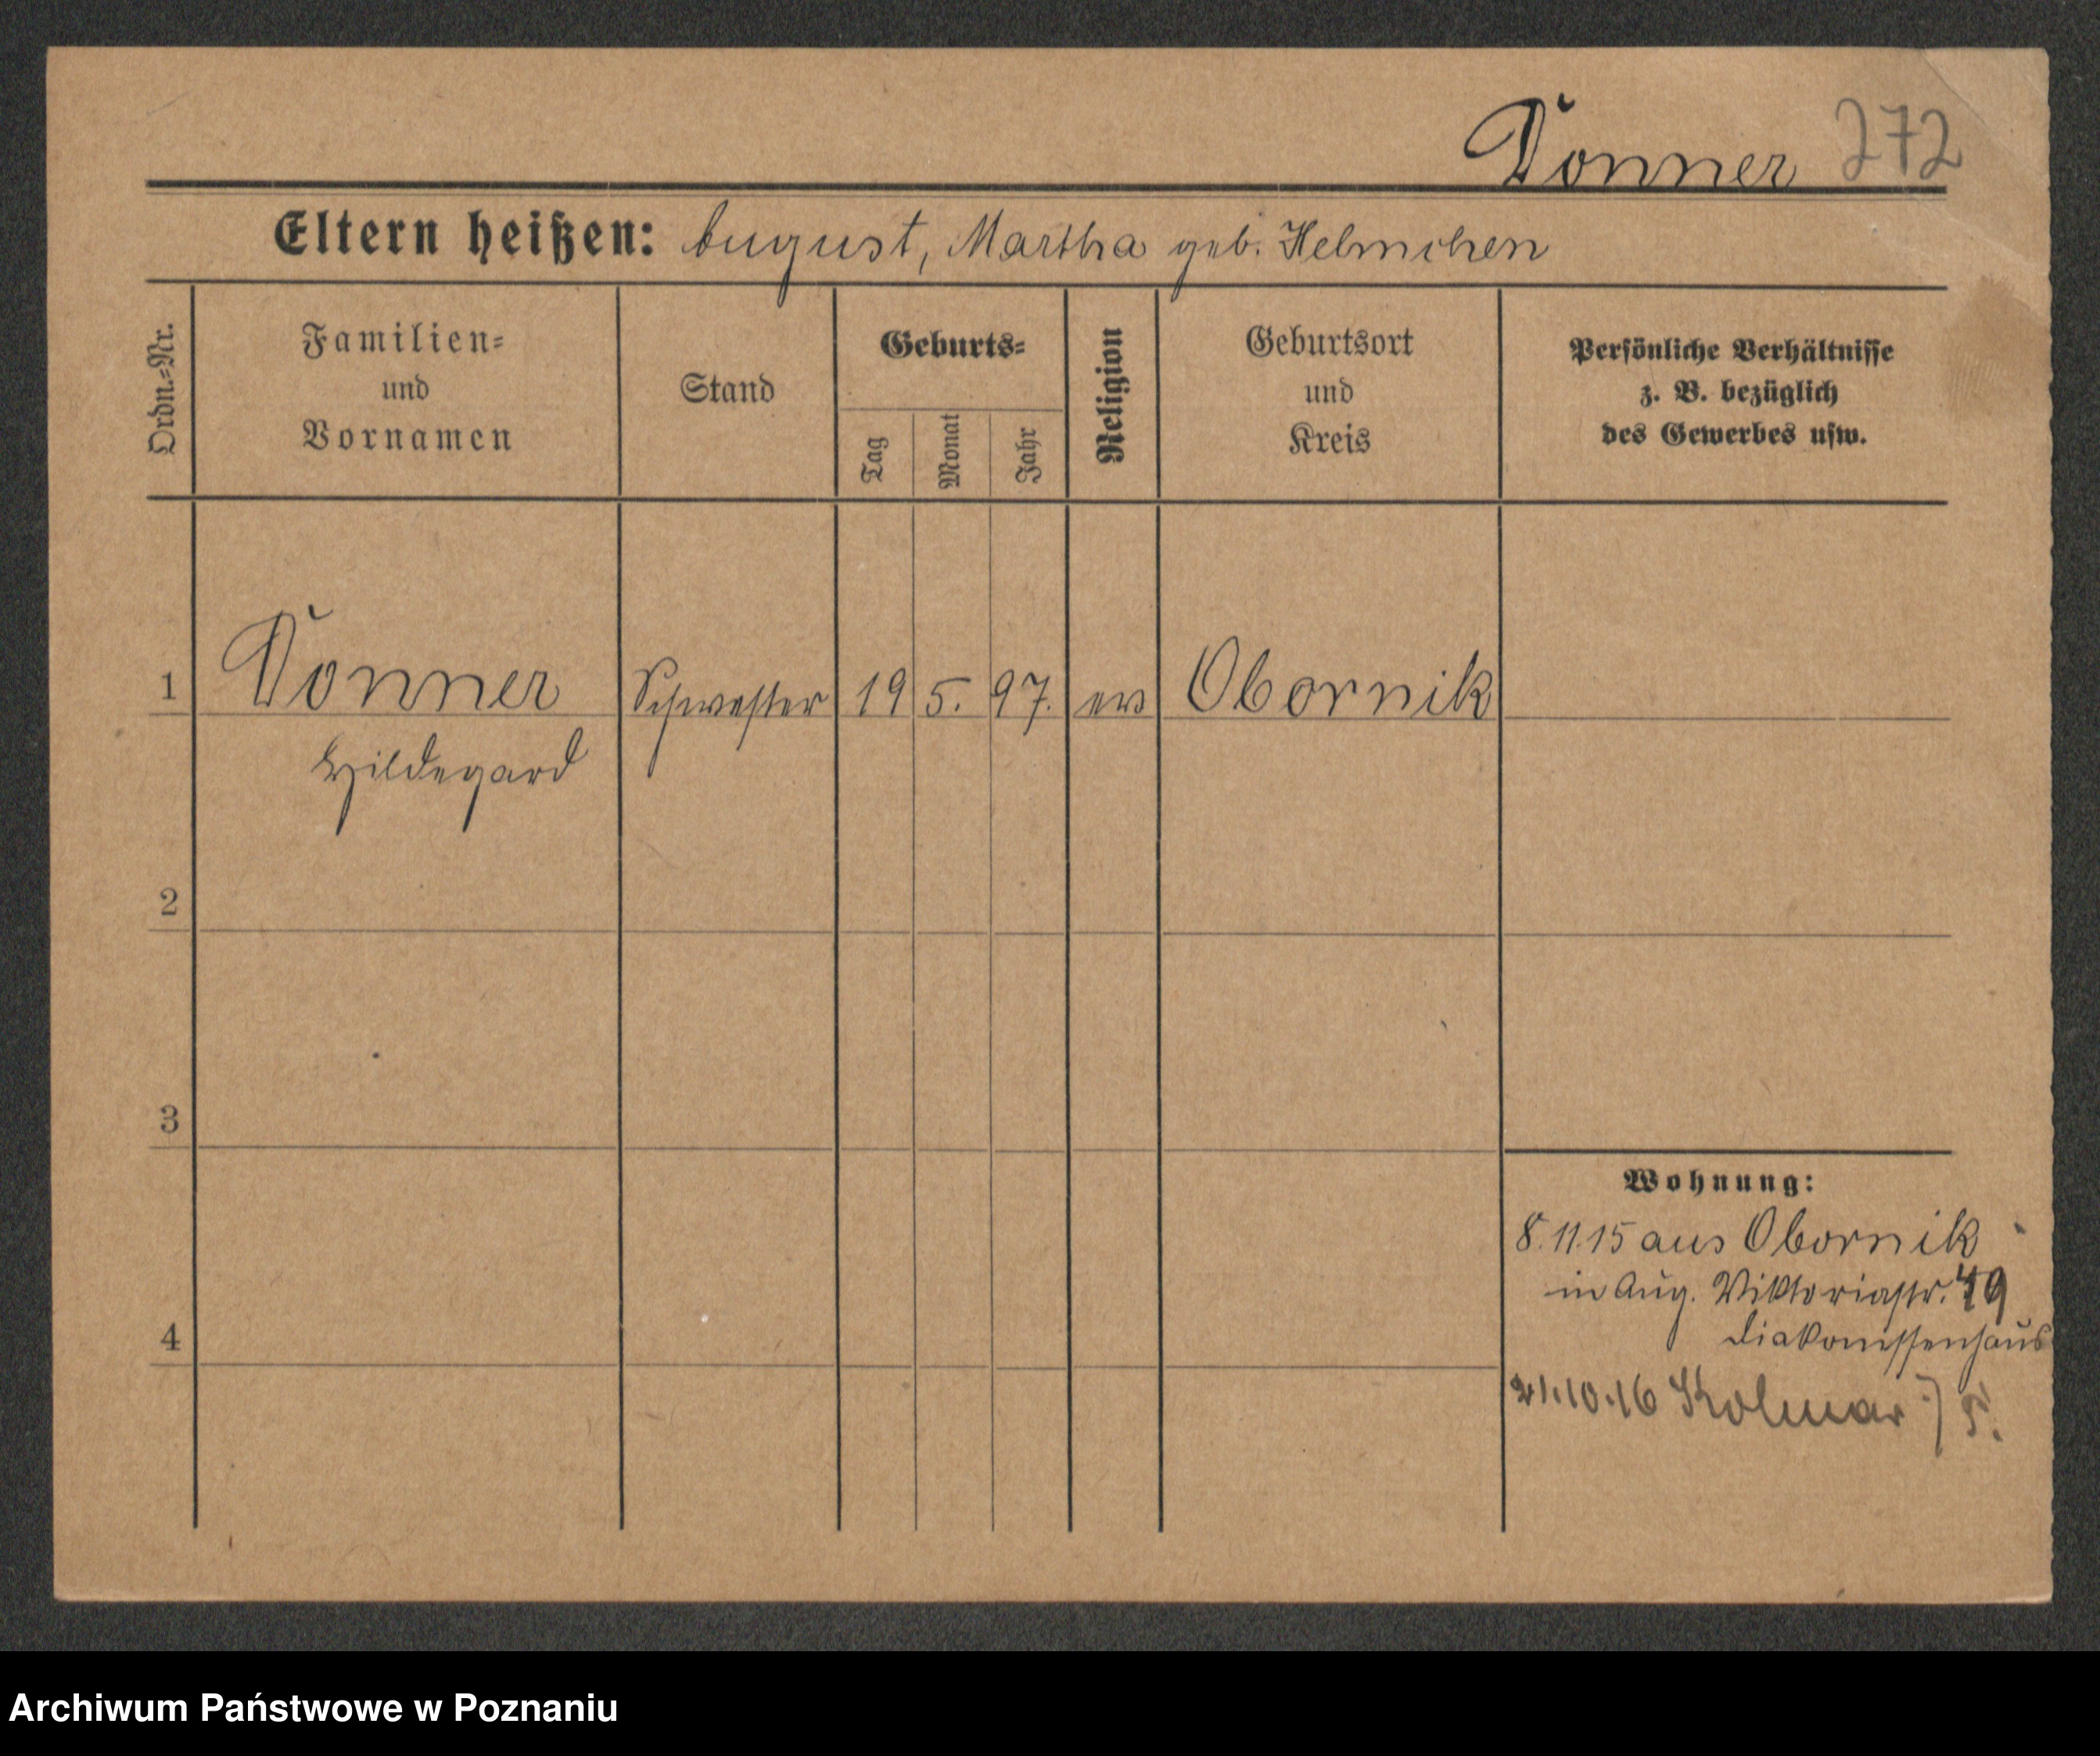 Donner 272
Eltern heißen: August, Martha geb. Helmchen
Ordn.-Nr.
Familien- und Vornamen
Stand
Geburts-
Tag
Monat
Jahr
Religion
Geburtsort und Kreis
Persönliche Verhältnisse
z. B. bezüglich
des Gewerbes usw.
1 Donner Schwester 19 5. 97. ev Obornik
Hildegard
2
3
Wohnung:
8.11.15 aus Obornik
in Aug. Viktoriastr. 49
Diakonissenhaus
4
21.10.16 Kolmar
Archiwum Państwowe w Poznaniu